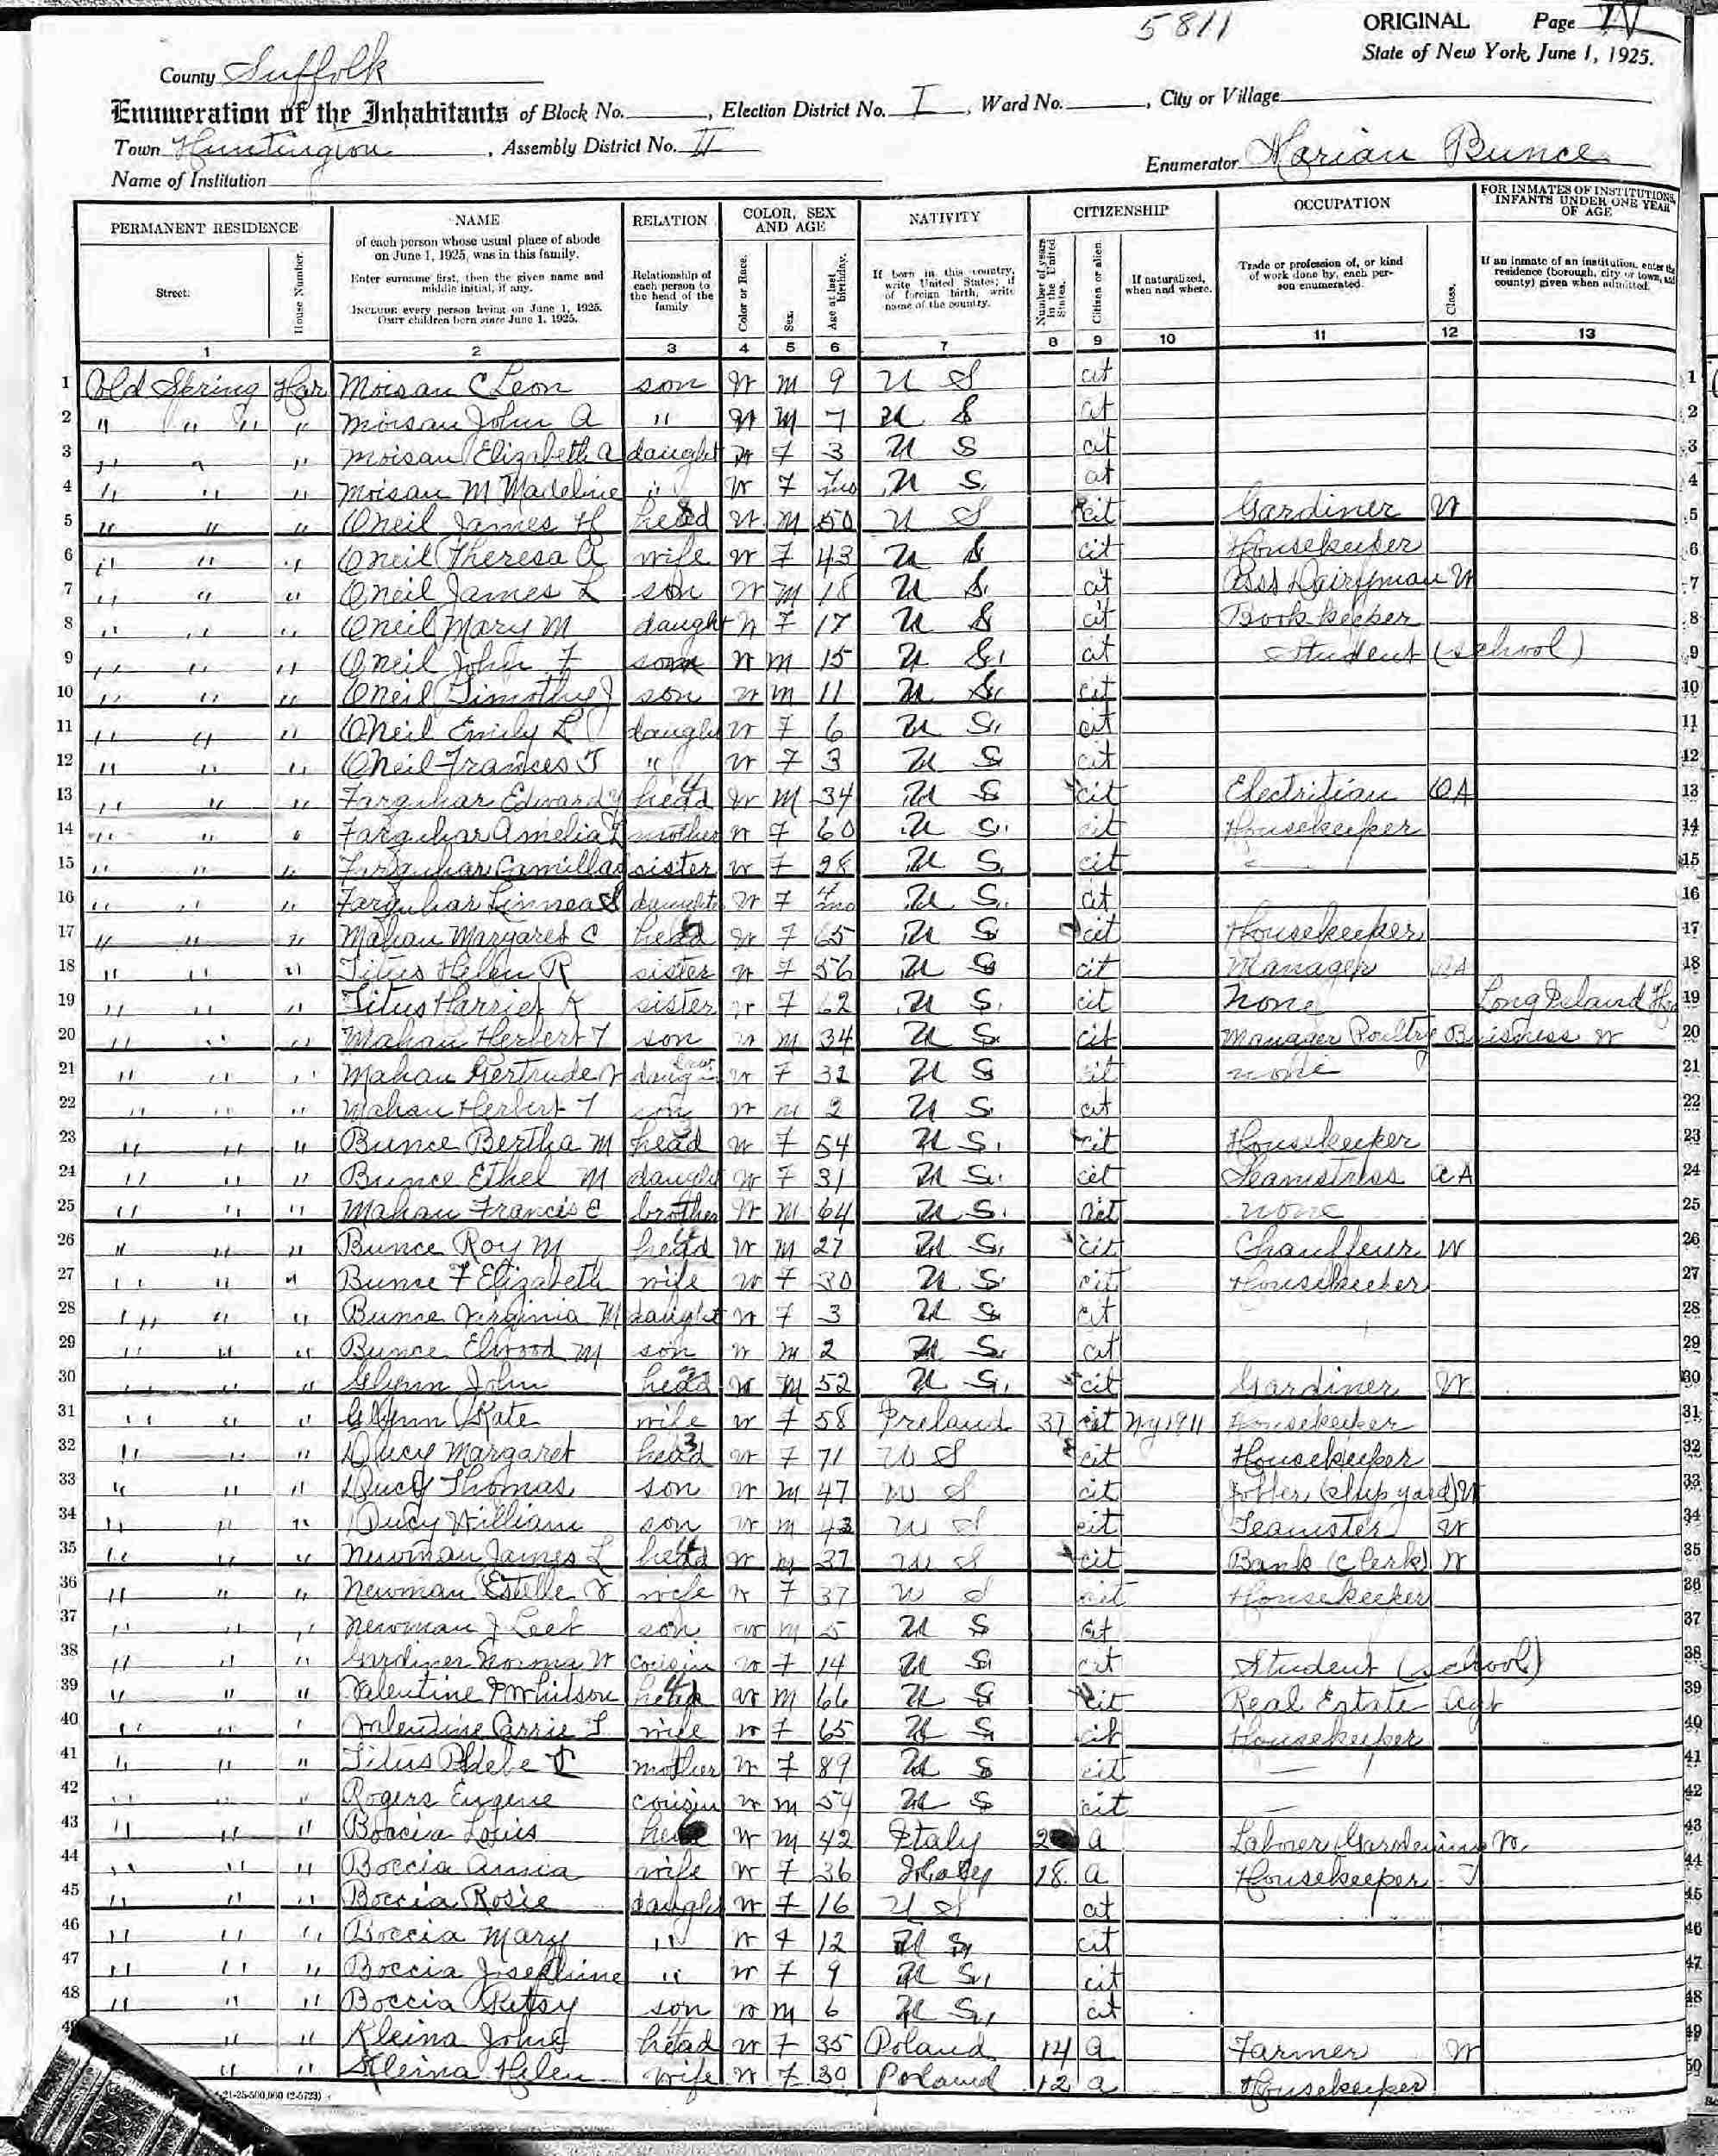 5811
ORIGINAL Page IV
State of New York, June 1, 1925.
County Suffolk
Enumeration of the Inhabitants of Block No. , Election District No. I , Ward No. , City or Village
Town Huntington , Assembly District No. II
Enumerator Marian Bunce
Name of Institution
PERMANENT RESIDENCE NAME RELATION COLOR, SEX AND AGE NATIVITY CITIZENSHIP OCCUPATION FOR INMATES OF INSTITUTIONS, INFANTS UNDER ONE YEAR OF AGE
Street: House Number. of each person whose usual place of abode on June 1, 1925, was in this family. Enter surname first, then the given name and middle initial, if any. INCLUDE every person living on June 1, 1925. OMIT children born since June 1, 1925. Relationship of each person to the head of the family Color or Race. Sex. Age at last birthday. If born in this country, write United States; if of foreign birth, write name of the country. Number of years in the United States. Citizen or alien. If naturalized, when and where. Trade or profession of, or kind of work done by, each person enumerated. Class. If an inmate of an institution, enter the residence (borough, city or town, and county) given when admitted.
1 2 3 4 5 6 7 8 9 10 11 12 13
1 Cold Spring Har Moisan C Leon son W M 9 U S cit 1
2 " " " Moisan John A " W M 7 U S cit 2
3 " " " Moisan Elizabeth A daught W F 3 U S cit 3
4 " " " Moisan M Madeline " W F mo U S cit 4
5 " " " ONeil James H head W M 50 U S cit Gardiner W 5
6 " " " ONeil Theresa A wife W F 43 U S cit Housekeeper 6
7 " " " ONeil James L son W M 18 U S cit Ass Dairyman W 7
8 " " " ONeil Mary M daught W F 17 U S cit Book keeper 8
9 " " " ONeil John F son W M 15 U S cit Student (school) 9
10 " " " ONeil Timothy J son W M 11 U S cit 10
11 " " " ONeil Emily L daught W F 6 U S cit 11
12 " " " ONeil Frances T " W F 3 U S cit 12
13 " " " Farquhar Edward head W M 34 U S cit Electritian OA 13
14 " " " Farquhar Amelia L mother W F 60 U S cit Housekeeper 14
15 " " " Farquhar Camilla sister W F 28 U S cit 15
16 " " " Farquhar Linnea S daught W F mo U S cit 16
17 " " " Mahan Margaret C head W F 65 U S cit Housekeeper 17
18 " " " Titus Helen R sister W F 56 U S cit Manager OA 18
19 " " " Titus Harriet K sister W F 62 U S cit none Long Island 19
20 " " " Mahan Herbert T son W M 34 U S cit Manager Poultry Buisness W 20
21 " " " Mahan Gertrude daug in law W F 32 U S cit none 21
22 " " " Mahan Herbert T son W M 2 U S cit 22
23 " " " Bunce Bertha M head W F 54 U S cit Housekeeper 23
24 " " " Bunce Ethel M daught W F 31 U S cit Seamstress OA 24
25 " " " Mahan Francis E brother W M 64 U S cit none 25
26 " " " Bunce Roy M head W M 27 U S cit Chauffeur W 26
27 " " " Bunce F Elizabeth wife W F 30 U S cit Housekeeper 27
28 " " " Bunce Virginia M daught W F 3 U S cit 28
29 " " " Bunce Elwood M son W M 2 U S cit 29
30 " " " Glynn John head W M 52 U S cit Gardiner W 30
31 " " " Glynn Kate wife W F 58 Ireland 37 cit NY 1911 Housekeeper 31
32 " " " Ducy Margaret head W F 71 U S cit Housekeeper 32
33 " " " Ducy Thomas son W M 47 U S cit (Ship yard) W 33
34 " " " Ducy William son W M 43 U S cit Teamster W 34
35 " " " Newman James L head W M 37 U S cit Bank (Clerk) W 35
36 " " " Newman Estelle V wife W F 37 U S cit Housekeeper 36
37 " " " Newman J Leet son W M 5 U S cit 37
38 " " " Gardiner Norma W cousin W F 14 U S cit Student (school) 38
39 " " " Valentine F Whilson head W M 66 U S cit Real Estate Agt 39
40 " " " Valentine Carrie T wife W F 65 U S cit Housekeeper 40
41 " " " Titus Phebe C mother W F 89 U S cit — 41
42 " " " Rogers Eugene cousin W M 54 U S cit — 42
43 " " " Boccia Louis head W M 42 Italy 2 a Laborer Gardening W 43
44 " " " Boccia Annia wife W F 36 Italy 18 a Housekeeper 44
45 " " " Boccia Rosie daught W F 16 U S cit 45
46 " " " Boccia Mary " W F 12 U S cit 46
47 " " " Boccia Josephine " W F 9 U S cit 47
48 " " " Boccia Patsy son W M 6 U S cit 48
49 " " Kleina John head W F 35 Poland 14 a Farmer W 49
" " Kleina Helen wife W F 30 Poland 12 a Housekeeper 50
-21-25-500,000 (2-5723)